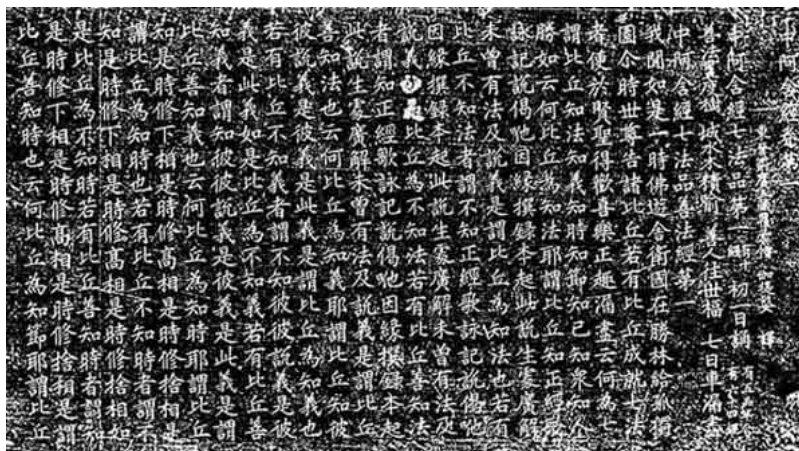 中阿含經卷第一
東晉罽賓三藏瞿曇僧伽提婆 譯
中阿含經七法品第一 頌 初一日誦 有五品半 有六十四經
善法晝度樹 城水木積喻 善人往世福 七日車漏七
中阿含經七法品善法經第一
我聞如是一時佛遊舍衛國在勝林給孤獨
園尒時世尊告諸比丘若有比丘成就七法
者便於賢聖得歡喜樂正趣漏盡云何為七
謂比丘知法知義知時知節知己知衆知人
勝如云何比丘為知法耶謂比丘知正經歌
詠記說偈咃因緣撰錄本起此說生處廣解
未曾有法及說義是謂比丘為知法也若有
比丘不知法者謂不知正經歌詠記說偈咃
因緣撰錄本起此說生處廣解未曾有法及
說義如是比丘為不知法若有比丘善知法
者謂知正經歌詠記說偈咃因緣撰錄本起
此說生處廣解未曾有法及說義是謂比丘
善知法也云何比丘為知義耶謂比丘知彼
彼說義是彼義是此義是謂比丘為知義也
若有比丘不知義者謂不知彼彼說義是彼
義是此義如是比丘為不知義若有比丘善
知義者謂知彼彼說義是彼義是此義是謂
比丘善知義也云何比丘為知時耶謂比丘
知是時修下相是時修高相是時修捨相是
謂比丘為知時也若有比丘不知時者謂不
知是時修下相是時修高相是時修捨相如
是比丘為不知時若有比丘善知時者謂知
是時修下相是時修高相是時修捨相是謂
比丘善知時也云何比丘為知節耶謂比丘